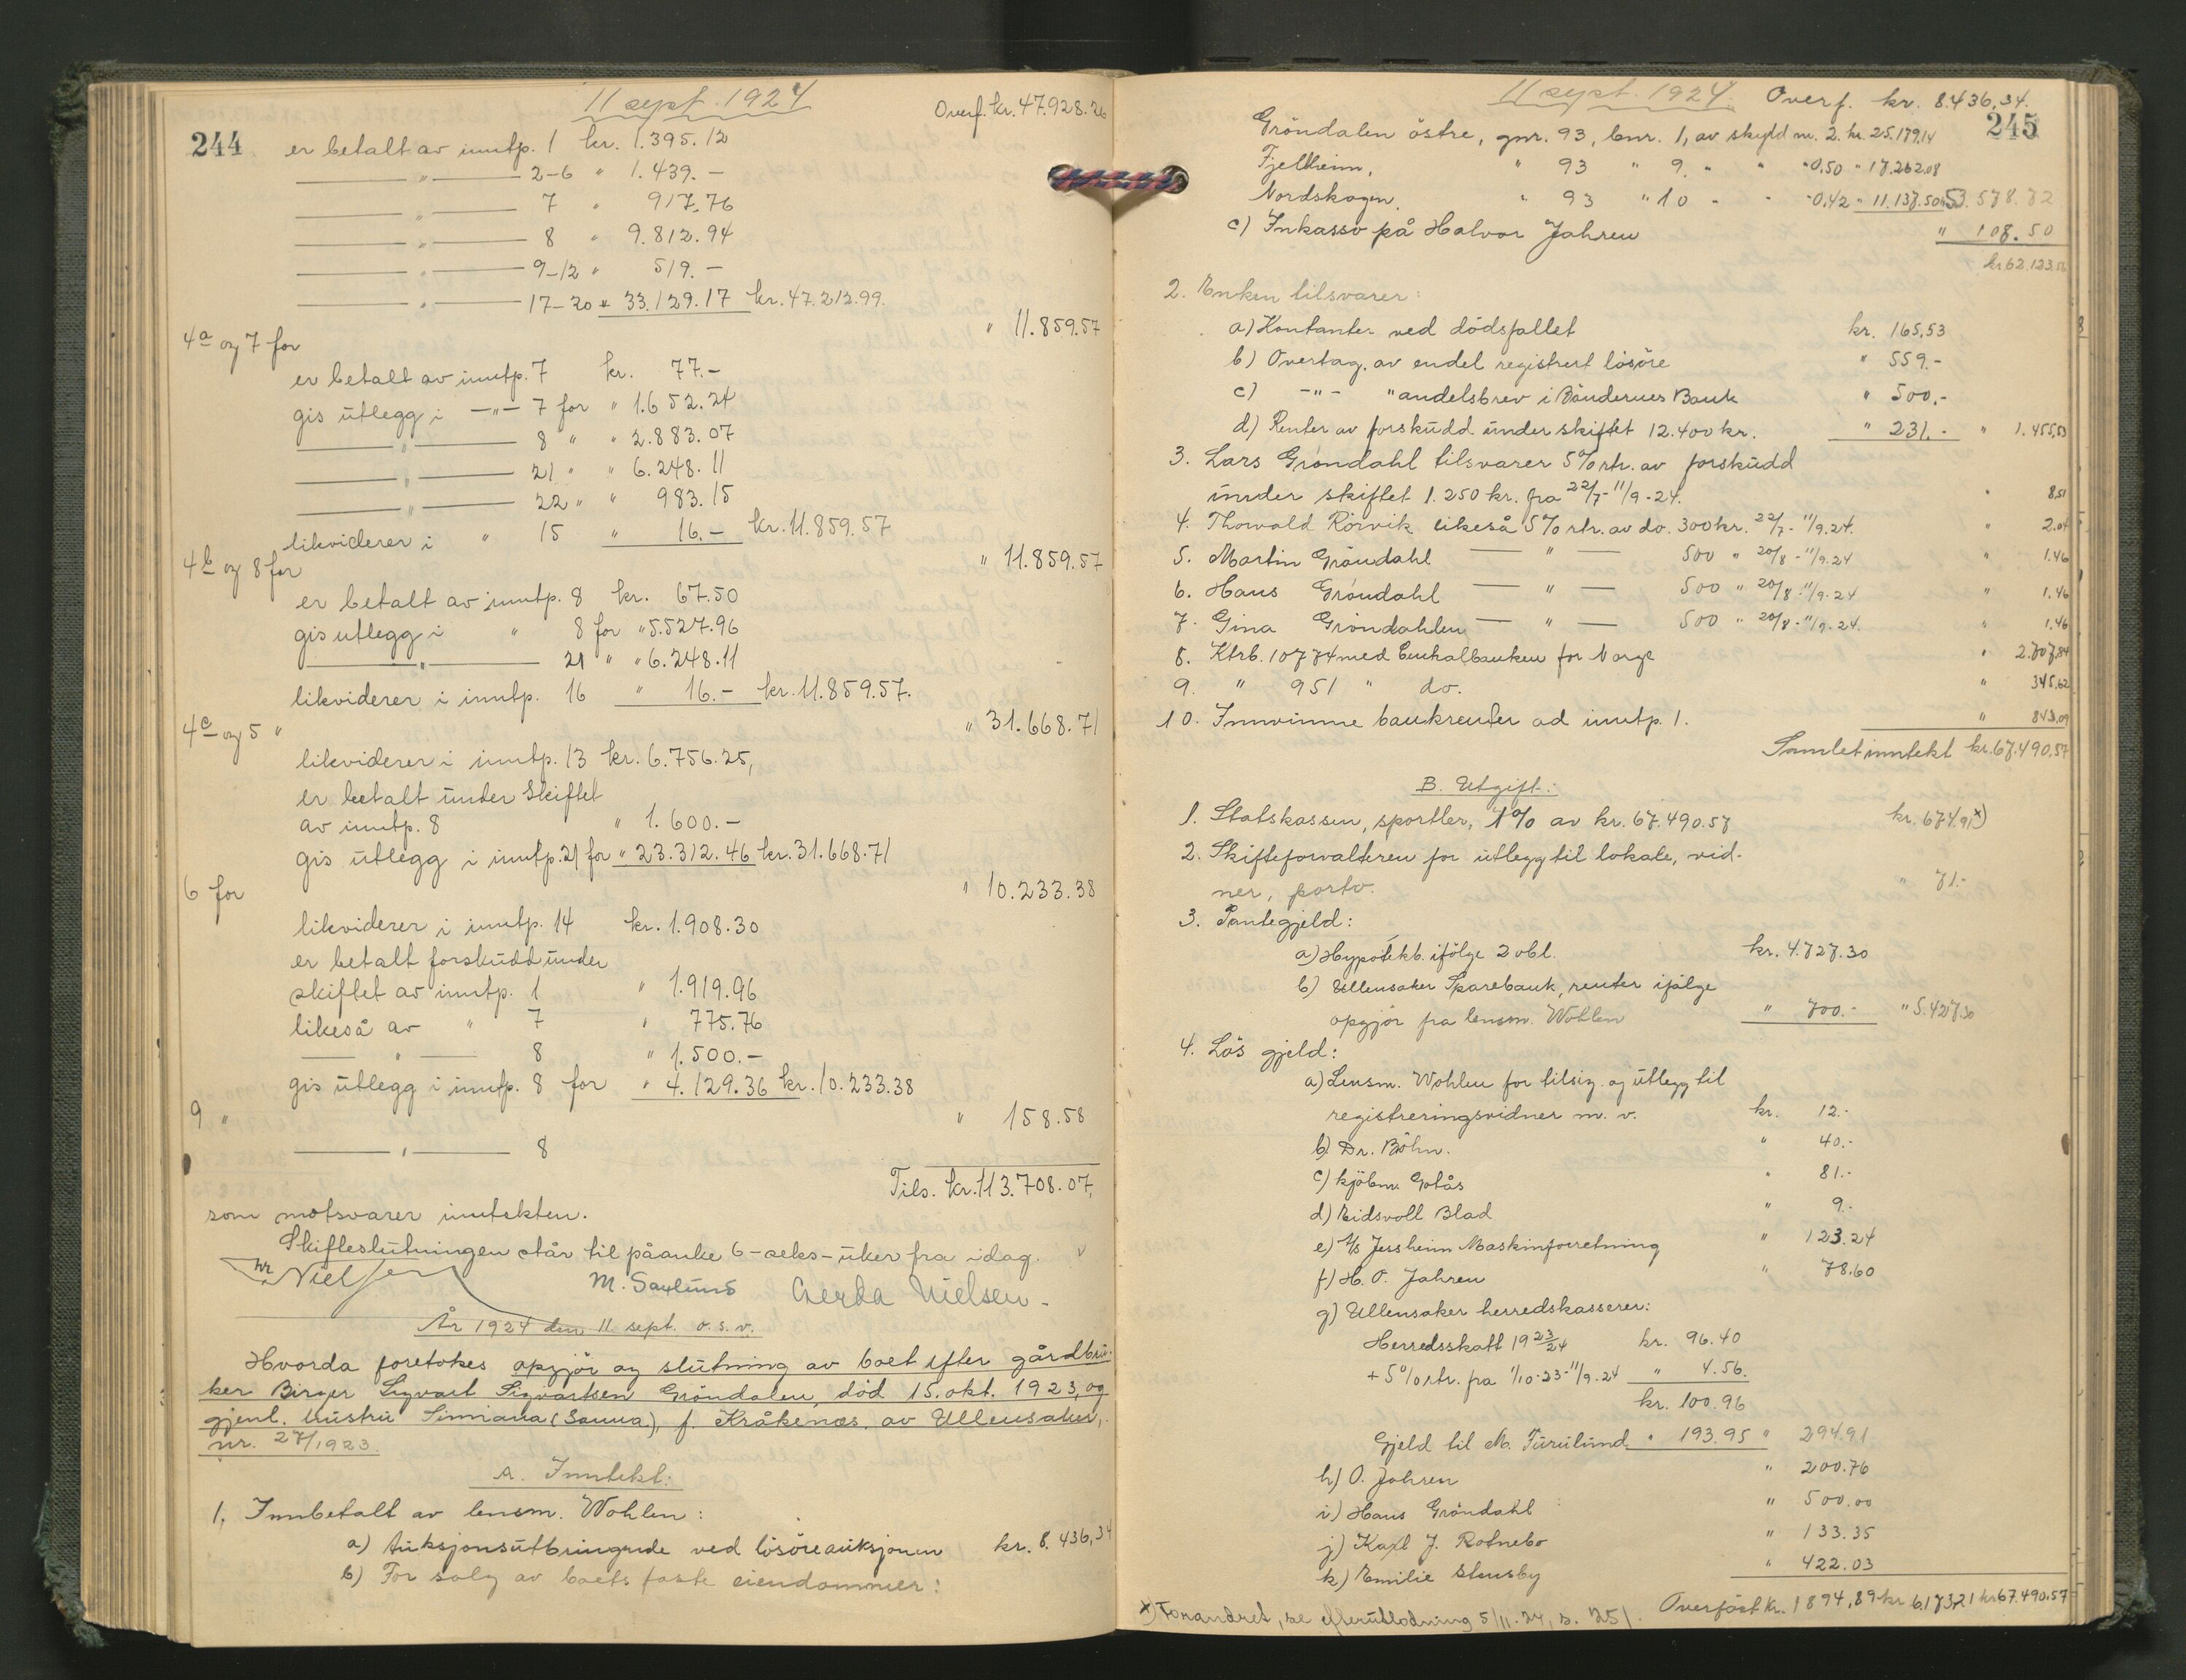 11 sept. 1924
Overf. kr. 47.928.26
244
er betalt av inntp. 1 kr. 1.395.12
—— " —— 2-6 " 1.439.–
—— " —— 7 " 917.76
—— " —— 8 " 9.812.94
—— " —— 9-12 " 519.–
—— " —— 17-20 " 33.129.17 kr. 47.212.99.
4a og 7 for " 11.859.57
er betalt av inntp. 7 kr. 77.–
gis utlegg i —"— 7 for " 1.652.24
—— " —— 8 " " 2.883.07
—— " —— 21 " " 6.248.11
—— " —— 22 " " 983.15
likviderer i " 15 " 16.– kr. 11.859.57
4b og 8 for " 11.859.57
er betalt av inntp. 8 kr. 67.50
gis utlegg i " 8 for " 5.527.96
—— " —— 21 " " 6.248.11
likviderer i inntp. 16 " 16.– kr. 11.859.57.
4c og 5 " " 31.668.71
likviderer i inntp. 13 kr. 6.756.25,
er betalt under skiftet
av inntp. 8 " 1.600.–
gis utlegg i inntp. 21 for " 23.312.46 kr. 31.668.71
6 for " 10.233.38
likviderer i inntp. 14 kr. 1.908.30
er betalt forskudd under
skiftet av inntp. 1 " 1.919.96
likeså av " 7 " 775.76
—— " —— 8 " 1.500.–
gis utlegg i inntp. 8 for " 4.129.36 kr. 10.233.38
9 " " 158.58
—— " —— 8
Tils. kr. 113.708.07,
som motsvarer inntekten.
Skifteslutningen står til påanke 6-seks-uker fra idag.
Nielsen M. Saxlund Gerda Nielsen.
År 1924 den 11. sept. o.s.v.
Hvorda foretokes opgjör og slutning av boet efter gårdbru-
ker Birger Sigvart Sigvartsen Gröndalen, död 15. okt. 1923, og
gjenl. hustru Simiana (Sanna), f. Kråkenæs, av Ullensaker,
nr. 27/1923.
A. Inntekt:
1. Innbetalt av lensm. Wohlen:
a) Auksjonsutbringende ved lösöreauksjonen kr. 8.436,34
b) For salg av boets faste eiendommer:
11 sept. 1924.
Overf. kr. 8.436,34.
245
Gröndalen östre, gnr. 93, bnr. 1, av skyld m. 2. kr. 25.179.14
Fjellheim, " 93 " 9. " " " 0,50 " 17.262.08
Nordskogen, " 93 " 10 " " " 0,42 " 11.137.50 " 53.578.72
c) Inkasso på Halvor Jahren " 108.50
kr. 62.123.56
2. Enken tilsvarer:
a) Kontanter ved dödsfallet kr. 165,53
b) Overtag. av endel registrert lösöre " 559.-
c) –"– " andelsbrev i Böndernes Bank " 500.-
d) Renter av forskudd under skiftet 12.400 kr. " 231.- " 1.455,53
3. Lars Gröndahl tilsvarer 5% rtr. av forskudd
under skiftet 1.250 kr. fra 22/7-11/9-24. " 8,51
4. Thorvald Rörvik likeså 5% rtr. av do. 300 kr. 22/7-11/9.24. " 2.04
5. Martin Gröndahl — " — 500 " 20/8-11/9.24 " 1.46
6. Hans Gröndahl — " — 500 " 20/8-11/9.24 " 1.46
7. Gina Gröndahlen — " — 500 " 20/8-11/9.24. " 1.46
8. Ktrb. 10774 med Centralbanken for Norge " 2.707,84
9. " 951 " do. " 345,62
10. Innvunne bankrenter ad inntp. 1. " 843,09
Samlet inntekt kr. 67.490,57
B. Utgift:
1. Statskassen, sportler, 1% av kr. 67.490.57 kr. 674.91 x)
2. Skifteforvalteren for utlegg til lokale, vid-
ner, porto. " 71.-
3. Pantegjeld:
a) Hypotekb. ifölge 2 obl. kr. 4.727.30
b) Ullensaker Sparebank, renter ifölge
opgjör fra lensm. Wohlen " 700.- " 5.427.30
4. Lös gjeld:
a) Lensm. Wohlen for tilsig. og utlegg til
registreringsvidner m. v. kr. 12.-
b) Dr. Böhn. " 40.-
c) kjöbm. Gotås " 81.-
d) Eidsvoll Blad " 9.-
e) A/s Jessheim Maskinforretning " 123.24
f) H. O. Jahren " 78.60
g) Ullensaker herredskasserer:
Herredsskatt 1923/24 kr. 96.40
+ 5% rtr. fra 1/10-23-11/9-24 " 4.56.
kr. 100.96
Gjeld til M. Furulund " 193.95 " 294.91
h) O. Jahren " 200.76
i) Hans Gröndahl " 500.00
j) Karl J. Rotnebo " 133.35
k) Emilie Stensby " 422.03
Overfört kr. 1894,89 kr. 6173,21 kr. 67.490,57
x) Forandret, se efterutlodning 5/11.24, s. 251.